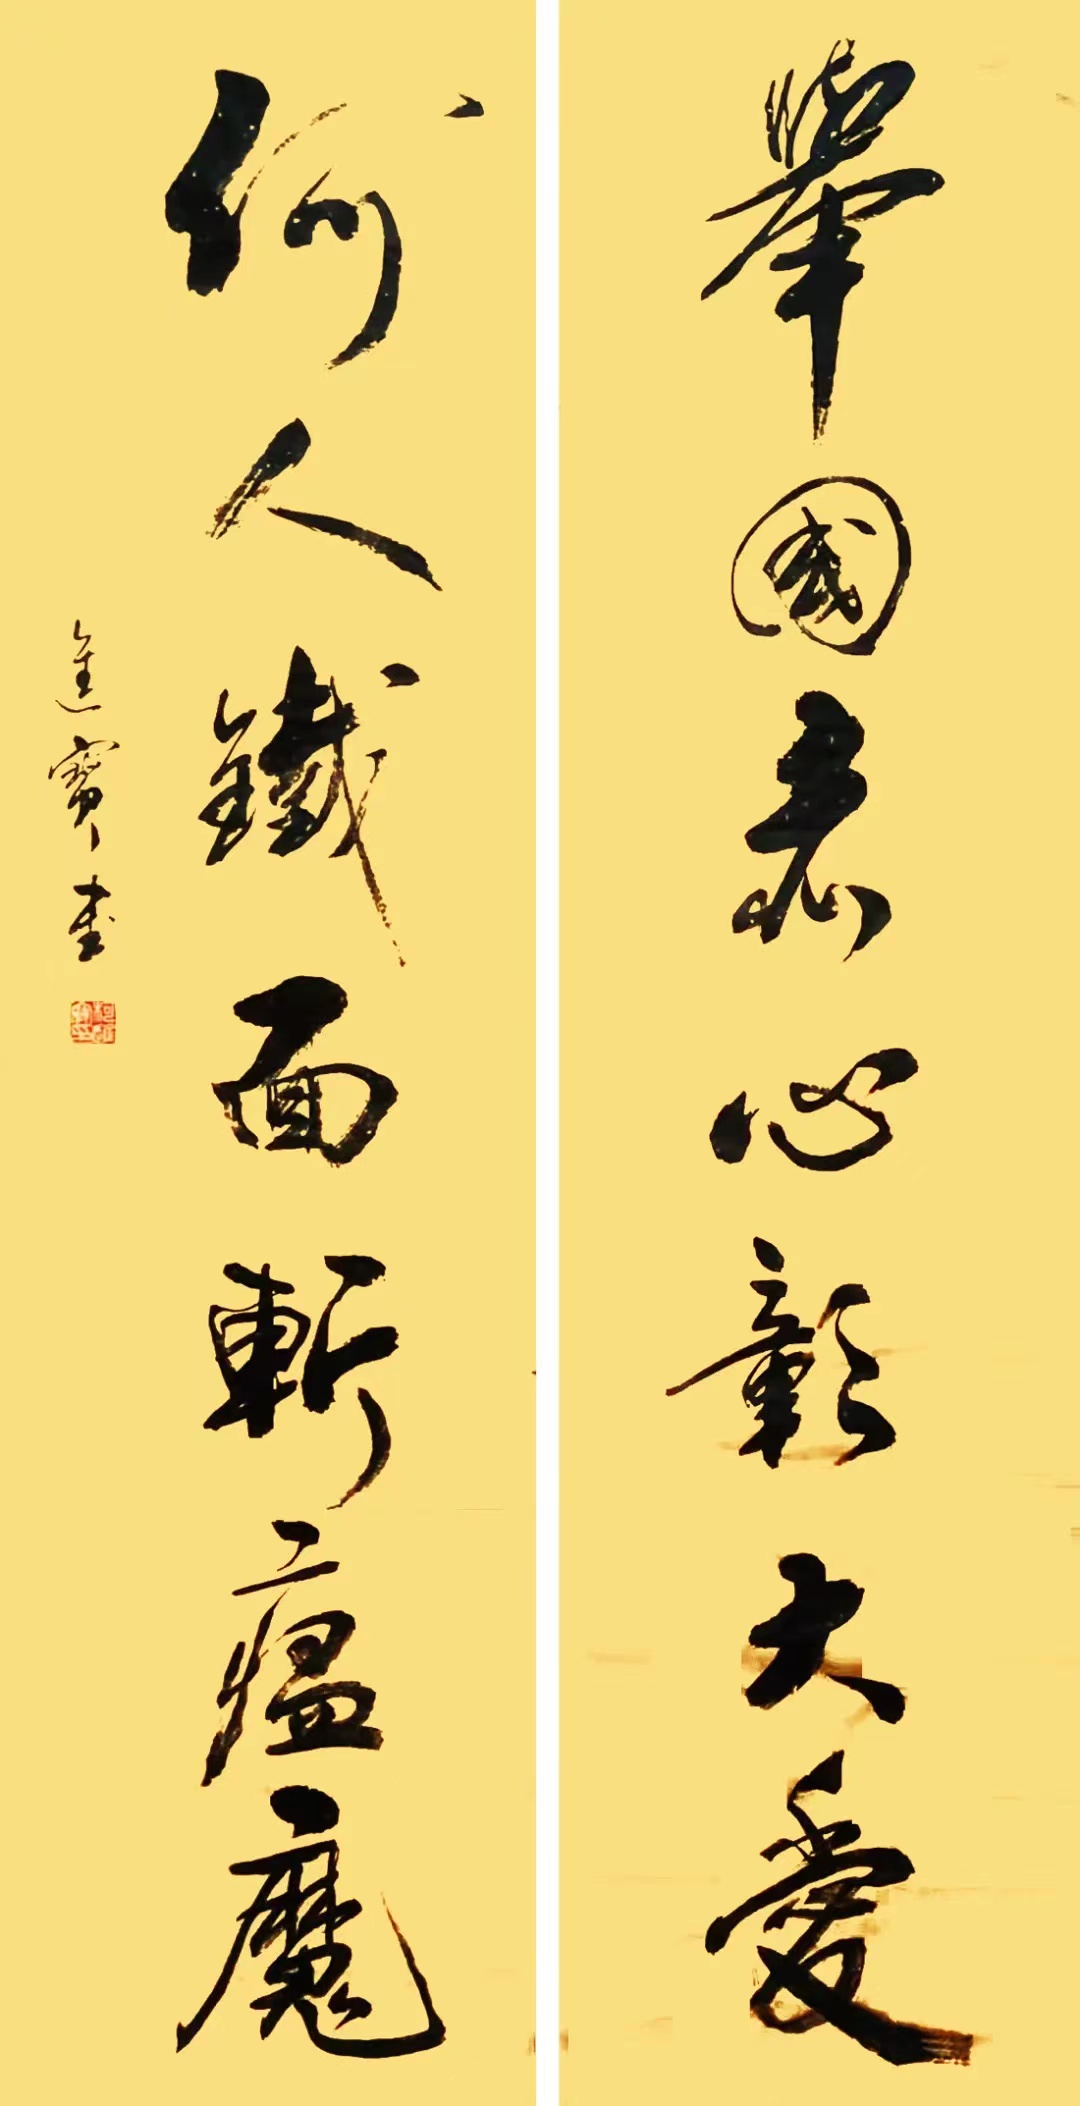 舉國衷心彰大愛
何人鐵面斬瘟魔
進寶書